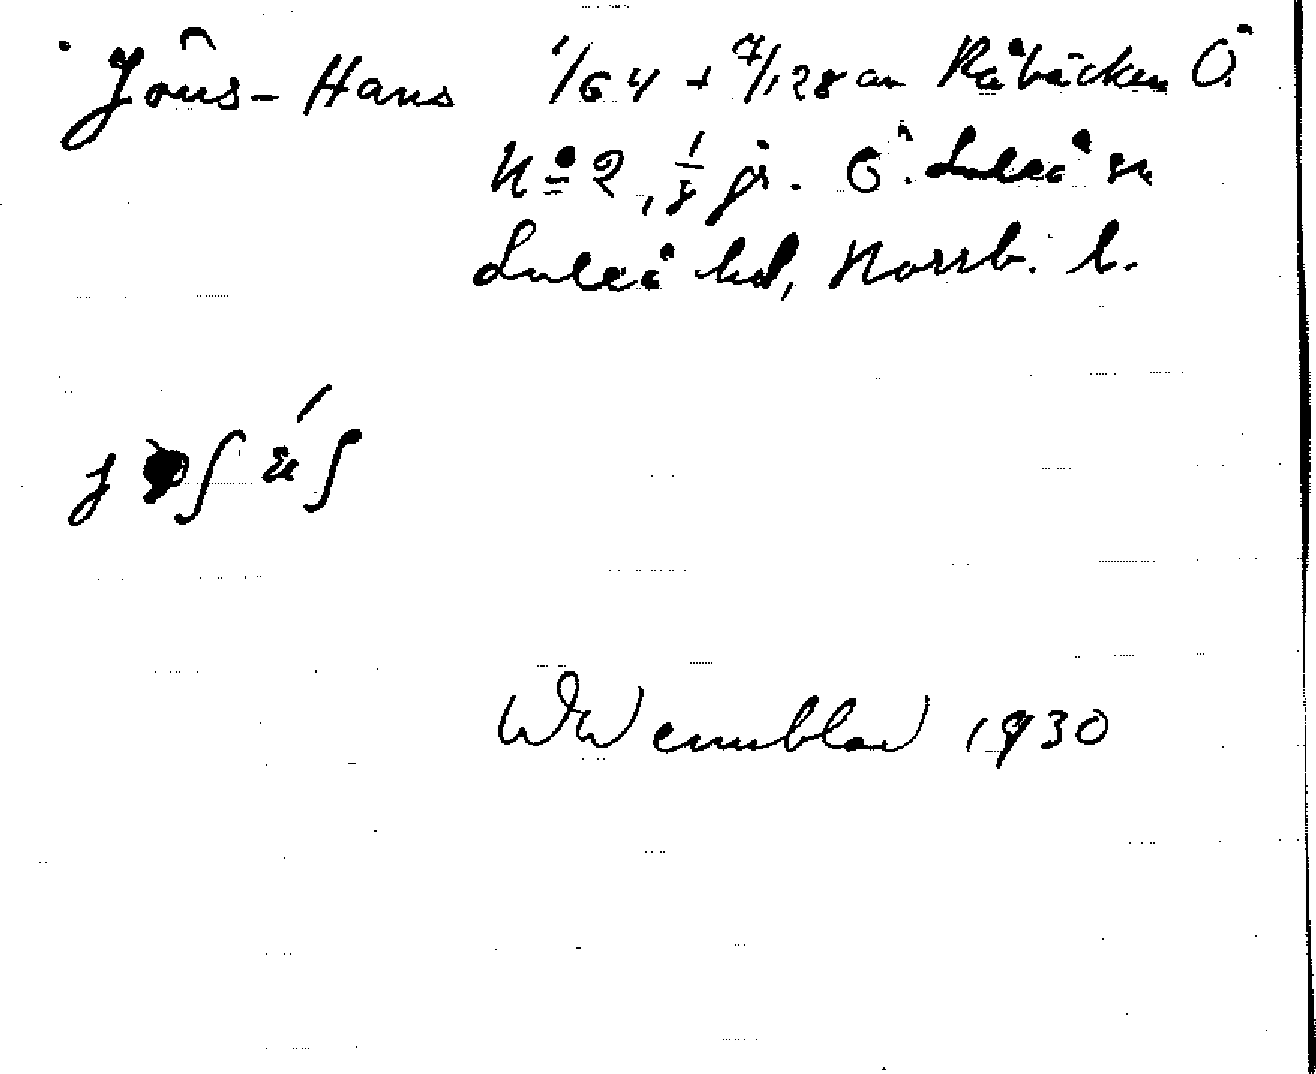 Jöns-Hans 1/64 + 7/128 av Råbäcken Ö.
No 2, 1/8 jr. Ö. Luleå sn
Luleå hd, Norrb. l.
W Wennblad 1930